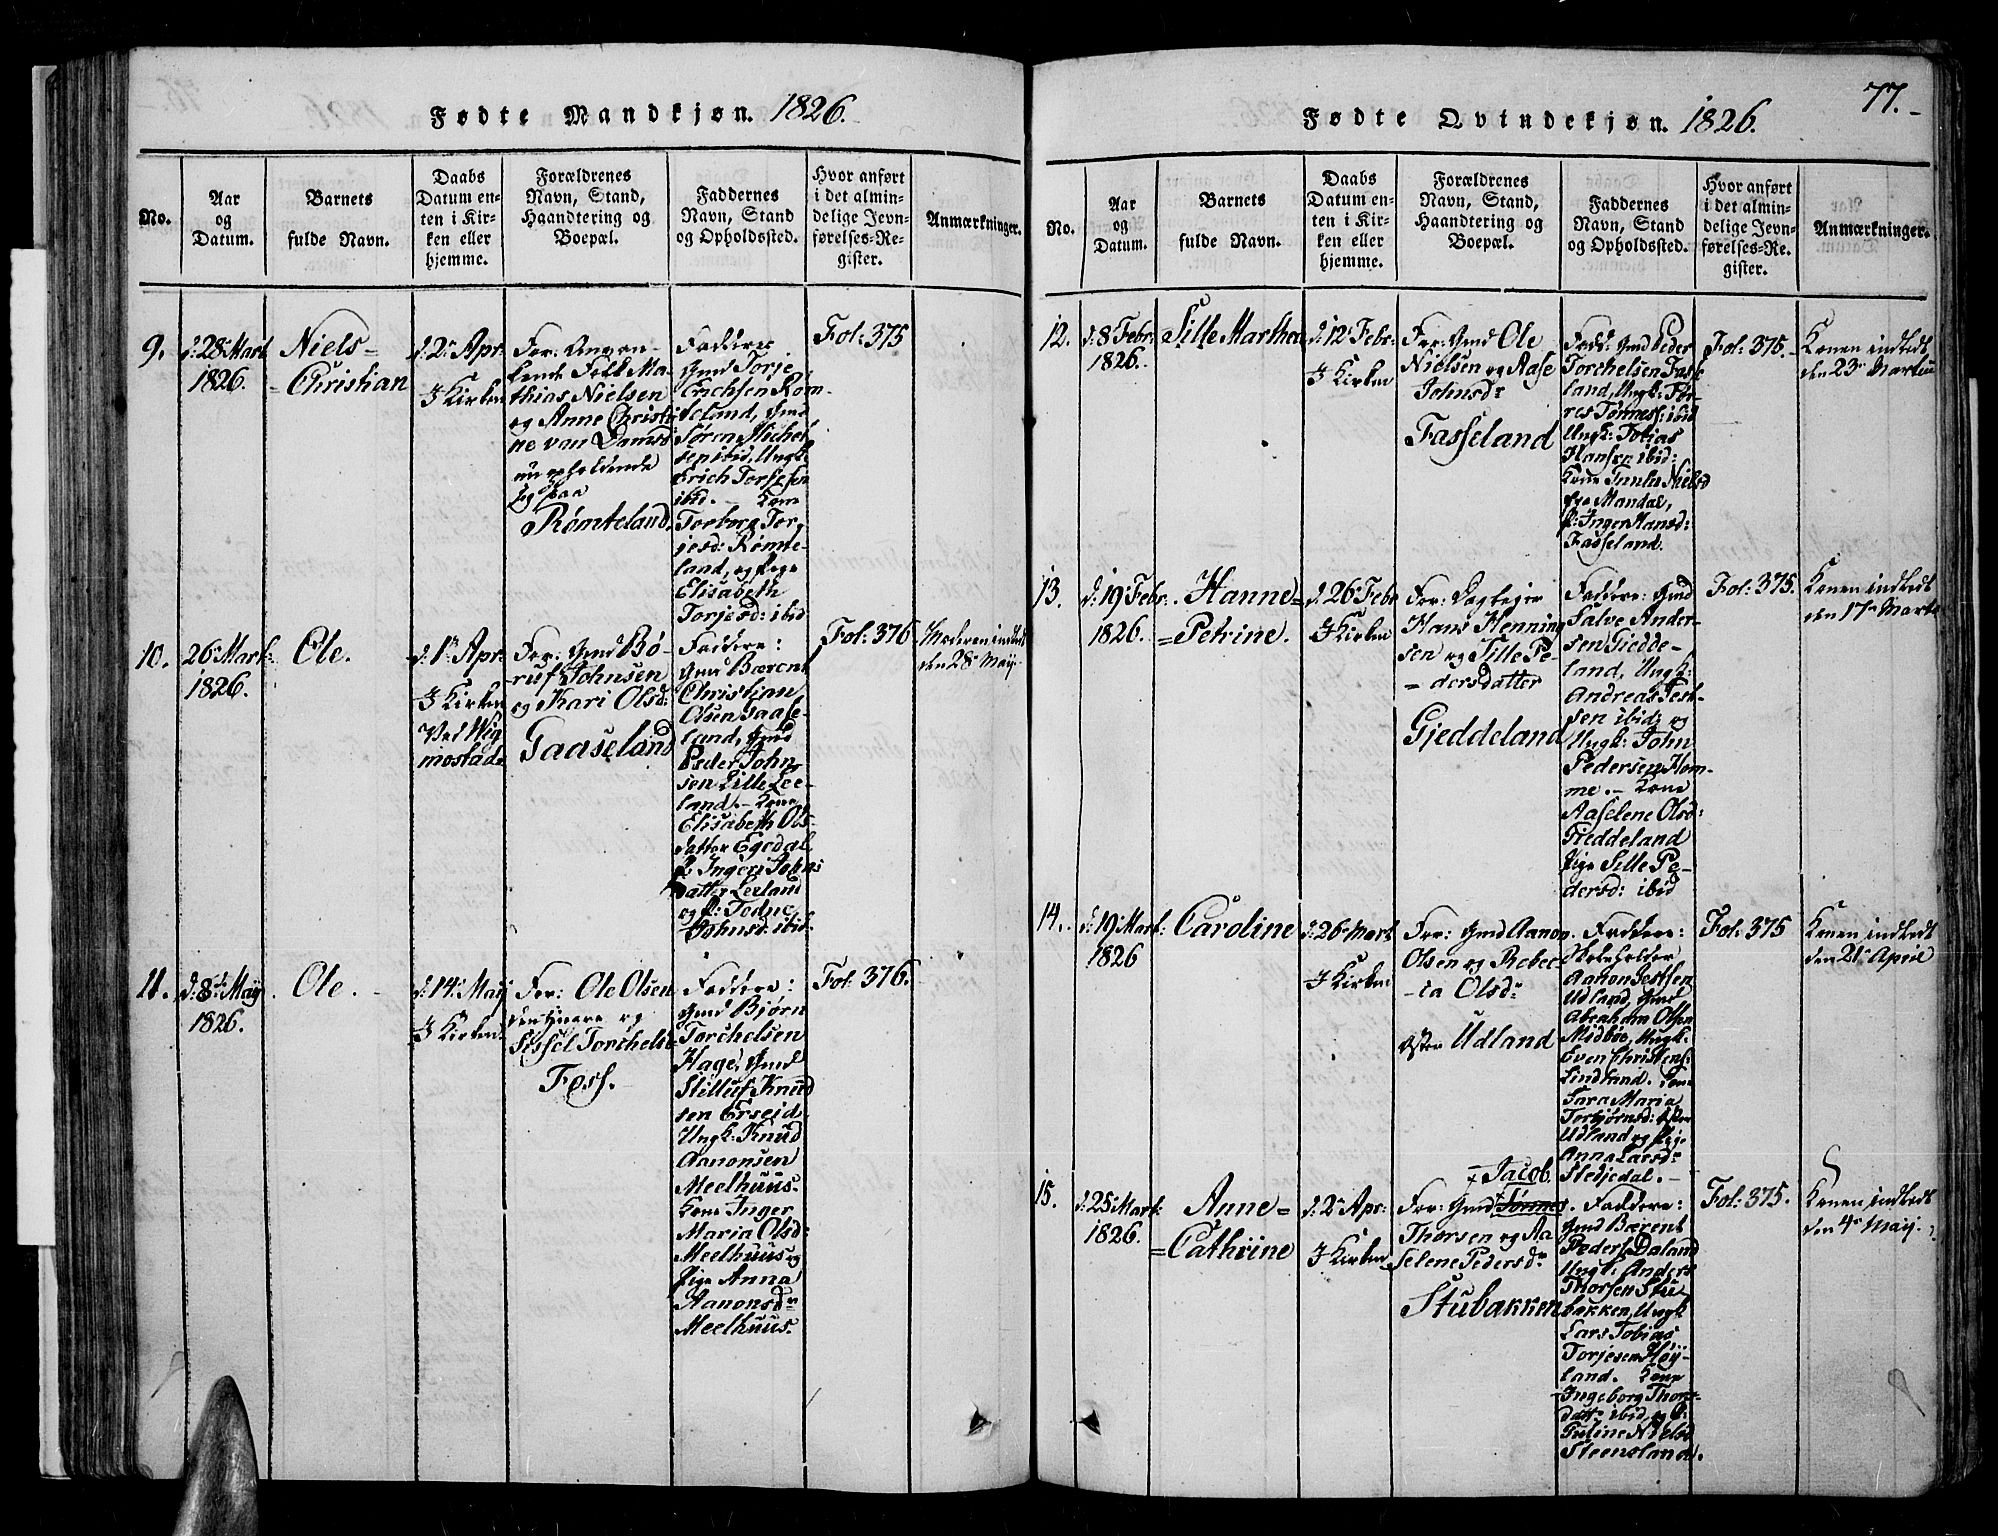 Fødte Mandkjøn. 1826.
No.
Aar
og
Datum.
Barnets
fulde Navn.
Daabs
Datum en-
ten i Kir-
ken eller
hjemme.
Forældrenes
Navn, Stand,
Haandtering og
Boepæl.
Faddernes
Navn, Stand
og Opholdssted.
Hvor anført
i det almin-
delige Jevn-
førelses-Re-
gister.
Anmærkninger.
9.
d: 28 Mart
1826.
Niels=
=Christian
d: 2 Apr
I Kirken
For:
Folk Ma-
thias Nielsen
og Anne Christi
ne van Dams
paa
Rømteland.
Faddere
Gmd Torje
Erichsen Røm-
teland, Gmd
Søren Michel
sen ibid, Ungk:
Erich Torjesen
ibid. – Kone
Torborg Tor-
jesd: Rømte-
land, og Pige
Elisabeth
Torjesd: ibid
Fol: 375
10.
26 Mart:
1826.
Ole.
d: 1 Apr
I Kirken
Ved Wig
mostad
For: Gmd Bø-
ruf Johnsen
og Kari Olsd:
Gaaseland
Faddere:
Gmd Bærent
Christian
Olsen Gaase-
land, Gmd
Peder John
sen Lille Lee-
land. – Kone
Elisabeth Ols-
datter Egedal
P: Inger Johns
datter Leeland
og P: Todne
Johnsd: ibid.
Fol: 376
Moderen indledt
den 28 May.
11.
d: 8 May
1826.
Ole.
d: 14 May
I Kirken
For: Ole Olsen
den yngre og
Sissel Torchelsd
Foss.
Faddere:
Gmd Bjørn
Torchelsen
Hage, Gmd
Stilluf Knud
sen Erseid
Ungk: Knud
Aanonsen
Meelhuus.
Kone Inger
Maria Olsd:
Meelhuus og
Pige Anna
Aanonsdr
Meelhuus.
Fol: 376.
77.
Fødte Qvindekjøn. 1826.
No.
Aar
og
Datum.
Barnets
fulde Navn.
Daabs
Datum en-
ten i Kir-
ken eller
hjemme.
Forældrenes
Navn, Stand,
Haandtering og
Boepæl.
Faddernes
Navn, Stand
og Opholdssted.
Hvor anført
i det almin-
delige Jevn-
førelses-Re-
gister.
Anmærkninger.
12.
d: 8 Febr:
1826.
Sille Marthea
d: 12 Febr:
I Kirken
For: Gmd Ole
Nielsen og Aase
Johnsdr
Fasseland
Fadd: Gmd Peder
Torchelsen Fasse
land, Ungk: Tør-
res Tønnes: ibid
Ungk: Tobias
Hansen ibid:
Kone Nielsd
fra Mandal,
P: Inger Hansd:
Fasseland.
Fol: 375.
Konen indledt
den 23 Martii
13.
d: 19 Febr.
1826.
Hanne=
=Petrine.
d: 26 Febr
I Kirken
For:
Hans Henning
sen og Sille Pe-
=dersdatter
Gjeddeland
Faddere: Gmd
Salve Ander-
sen Giedde-
land, Ungk:
Andreas Jest-
sen ibid, og
Ungk: John
Pedersen Hom-
me. – Kone
Aaselene Olsd:
Gieddeland
Pige Sille Pe-
dersd: ibid
Fol: 375.
Konen indledt
den 17 Marts
14.
d: 19 Mart:
1826
Caroline
d: 26 Mart
I Kirken
For: Gmd Aanon
Olsen og Rebec-
-ca Olsdr
Øster Udland
Faddere:
Skoleholder
Aanon Jestsen
Udland, Gmd
Abraham Olsen
Midbøe, Ungk:
Even Christens:
Lindland. Kone
Sara Maria
Torbjørnsd: Øster
Udland og Pige
Anna Larsdr
Stedjedal. –
Fol: 375
Konen indledt
den 21 April
15.
d: 25 Mart:
1826.
Anne=
=Cathrine
d: 2 Apr:
I Kirken
Jacob
For: Gmd Tønnes
Thorsen og Aa-
selene Pedersdr
Stubakken
Faddere:
Gmd Bærent
Peders. Daland
Ungk: Anders
Thorsen Stu
bakken, Ungk
Lars Tobias
Torjesen Høy-
land. Kone
Ingeborg Thors-
datr ibid, og P:
Guline Nielsd
Steensland.
Fol: 375.
Konen indledt
den 4 May.